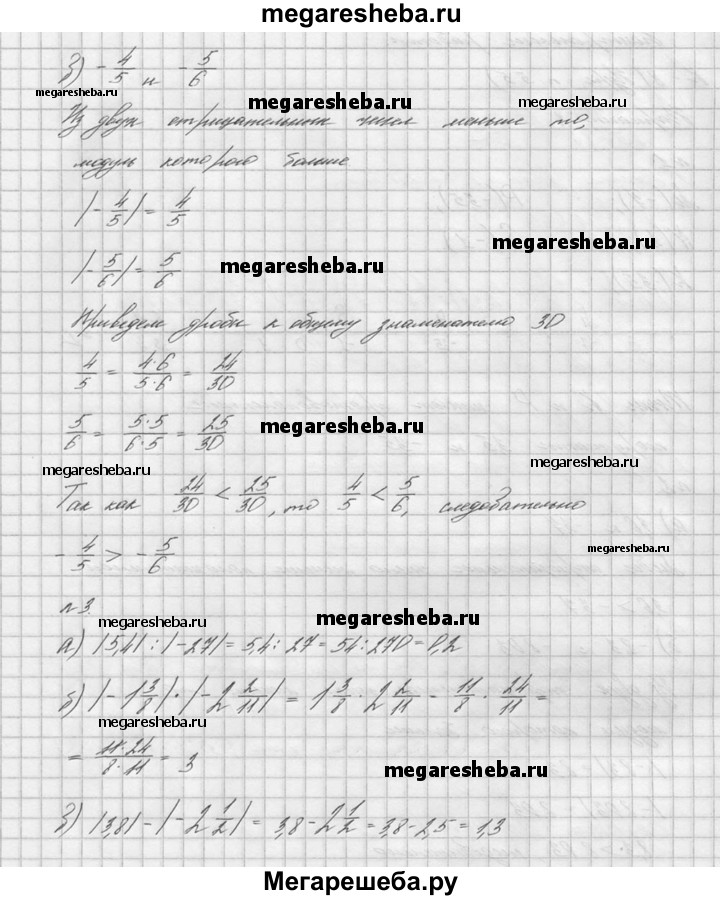 megaresheba.ru
в) -4/5 и -5/6
megaresheba.ru
megaresheba.ru
megaresheba.ru
Из двух отрицательных чисел меньше то,
модуль которого больше
|-4/5| = 4/5
megaresheba.ru
|-5/6| = 5/6
megaresheba.ru
Приведем дроби к общему знаменателю 30
4/5 = 4·6/5·6 = 24/30
5/6 = 5·5/6·5 = 25/30
megaresheba.ru
megaresheba.ru
megaresheba.ru
Так как 24/30 < 25/30, то 4/5 < 5/6, следовательно
-4/5 > -5/6
megaresheba.ru
№3.
megaresheba.ru
megaresheba.ru
а) |5,4| : |-27| = 5,4 : 27 = 54 : 270 = 0,2
б) |-1 3/8| · |-2 2/11| = 1 3/8 · 2 2/11 = 11/8 · 24/11 =
megaresheba.ru
= 11·24/8·11 = 3
megaresheba.ru
в) |3,8| - |-2 1/2| = 3,8 - 2 1/2 = 3,8 - 2,5 = 1,3
Мегарешеба.ру